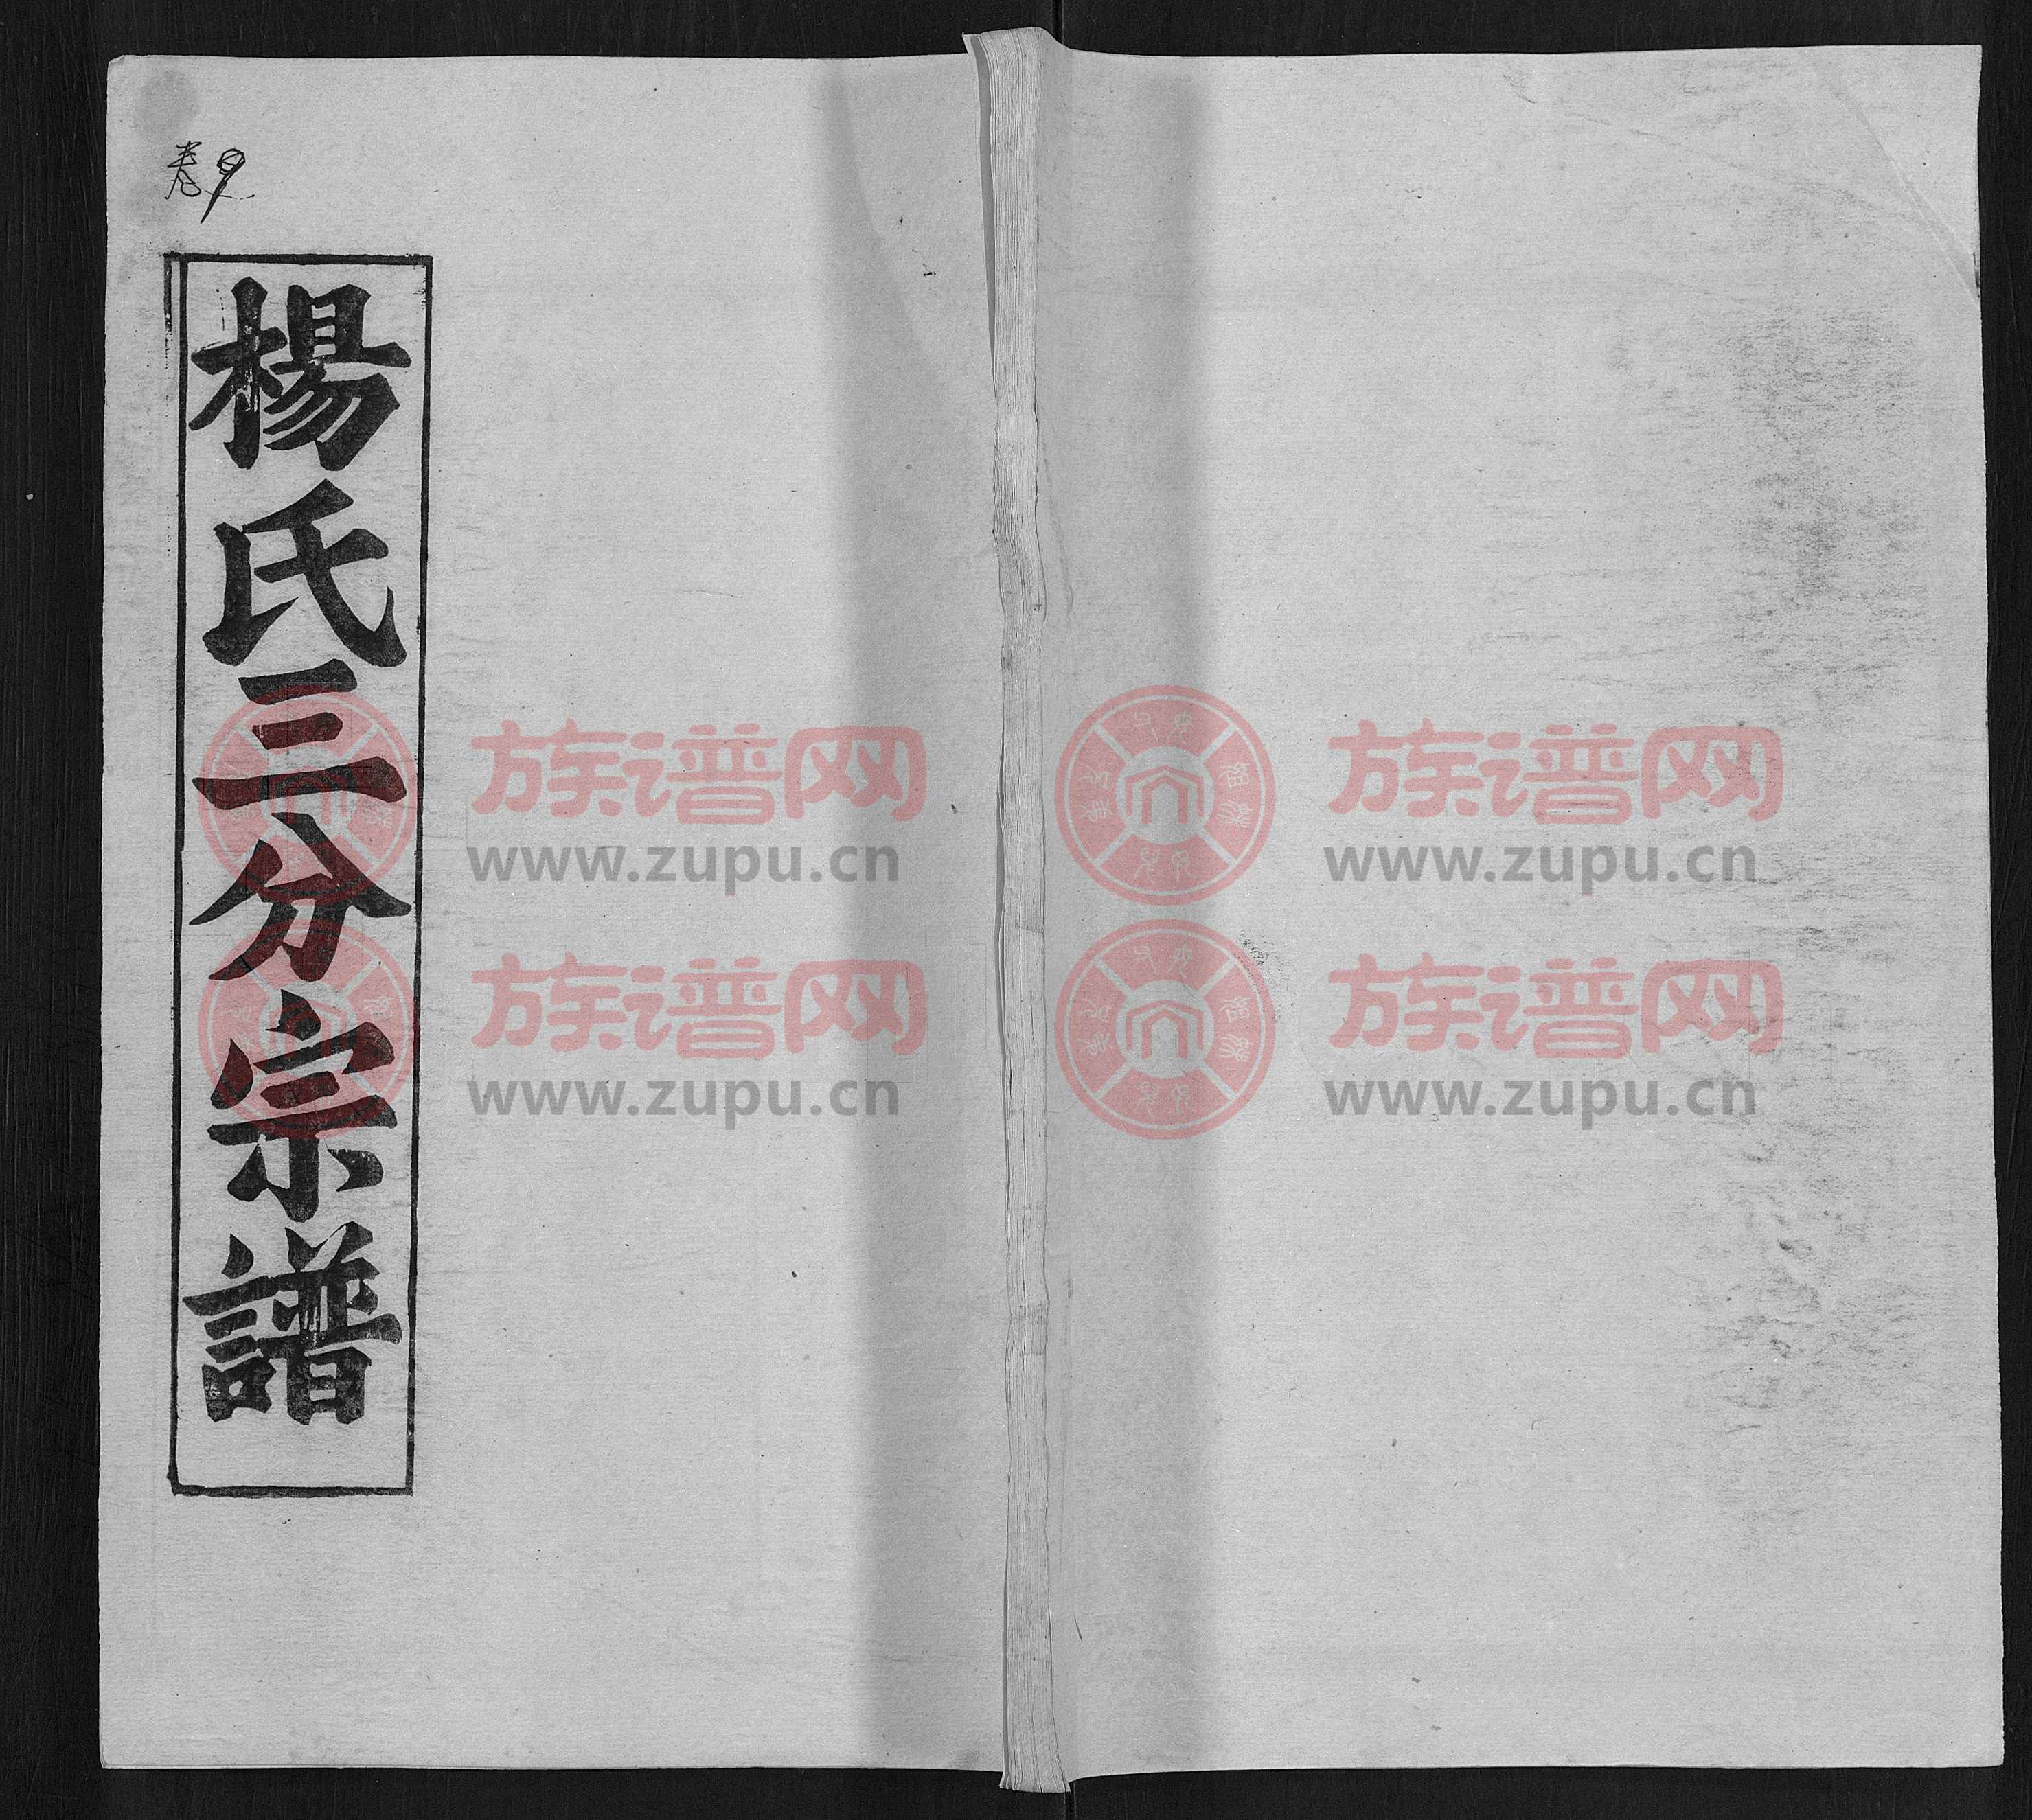 卷9
楊氏三分宗譜
族谱网
www.zupu.cn
族谱网
www.zupu.cn
族谱网
www.zupu.cn
族谱网
www.zupu.cn